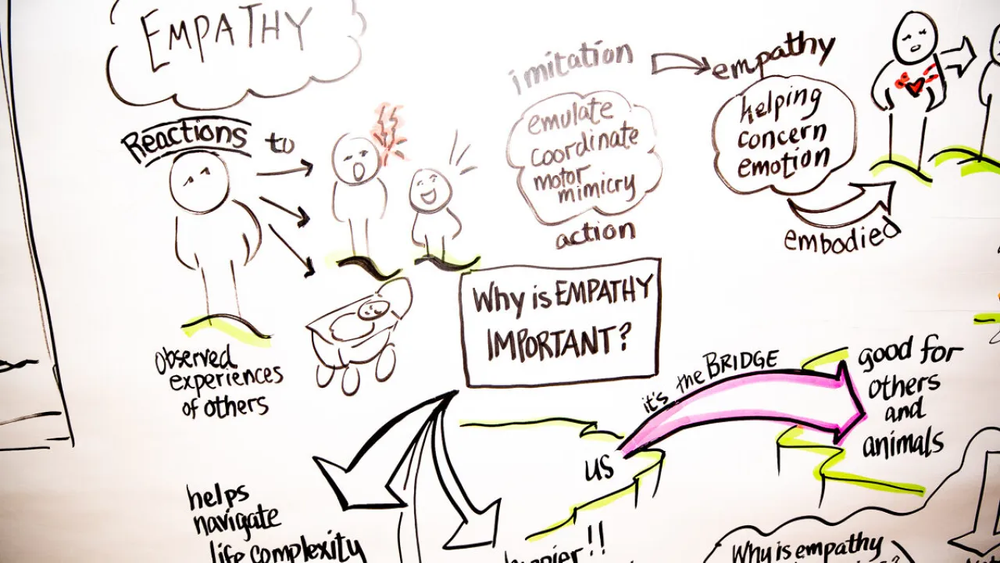 EMPATHY
Reactions to
observed
experiences
of others
imitation
emulate
coordinate
motor
mimicry
action
empathy
helping
concern
emotion
embodied
Why is EMPATHY
IMPORTANT?
helps
navigate
life complexity
us
it's the BRIDGE
good for
others
and
animals
Why is empathy